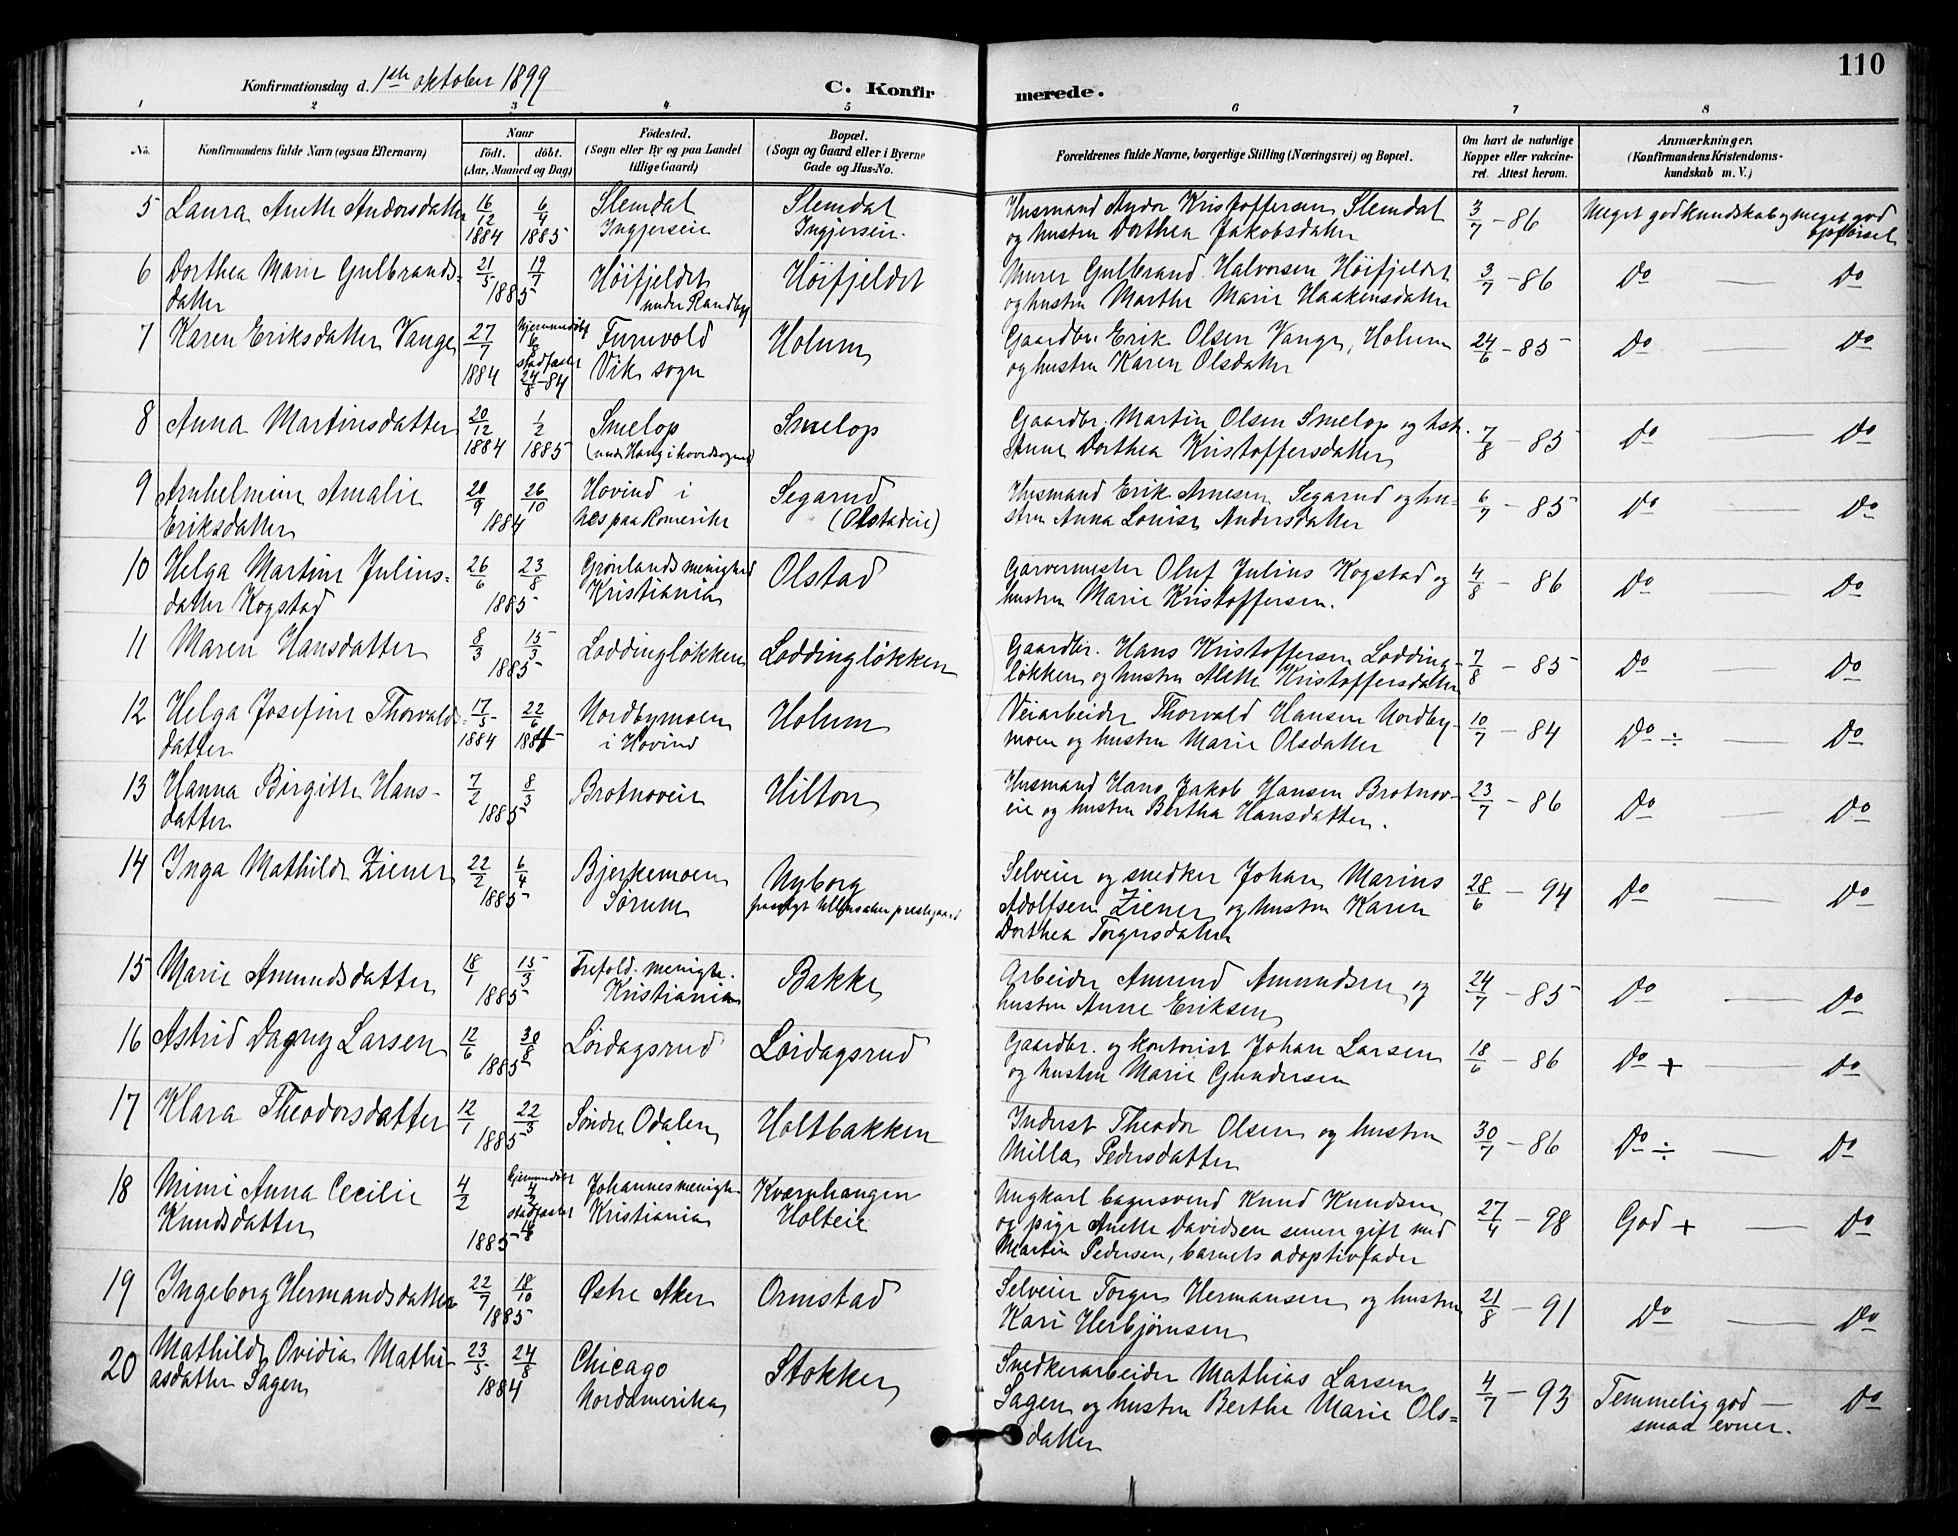 110
Konfirmationsdag d. 1ste oktober 1899
C. Konfirmerede.
1 2 3 4 5 6 7 8
No.
Konfirmandens fulde Navn (ogsaa Efternavn)
Naar
födt. döbt.
(Aar, Maaned og Dag)
Födested.
(Sogn eller By og paa Landet
tillige Gaard)
Bopæl.
(Sogn og Gaard eller i Byerne
Gade og Hus-No.
Forældrenes fulde Navne, borgerlige Stilling (Næringsvei) og Bopæl.
Om havt de naturlige
Kopper eller vakcineret. Attest herom.
Anmærkninger.
(Konfirmandens Kristendomskundskab m. V.)
5 Laura Anette Andorsdatter 16/12 1884 6/4 1885
Slemdal
Ingjerseie
Slemdal
Ingjerseie.
Husmand Andor Kristoffersen Slemdal
og hustru Dorthea Jakobsdatter
3/7 - 86 Meget god kundskab og meget god
opførsel
6 Dorthea Marie Gulbrands-
datter
21/5 19/7 1885
Höifjeldet
under Randby
Höifjeldet
Murer Gulbrand Halvorsen Höifjeldet
og hustru Marthe Marie Haakensdatter
3/7 - 86 Do — Do
7 Karen Eriksdatter Vange 27/7 1884
hjemmedøbt
6/8
stadfæstet
24/8 - 84
Furuvold
Vik sogn
Holum
Gaardbr. Erik Olsen Vange, Holum
og hustru Karen Olsdatter
24/6 - 85 Do — Do
8 Anna Martinsdatter 20/12 1884 1/2 1885
Smelop
(under Haug i hovedsognet)
Smelop
Gaardbr. Martin Olsen Smelop og hst.
Anne Dorthea Kristoffersdatter
7/8 - 85 Do — Do
9 Arnhelmine Amalie
Eriksdatter
20/9 26/10 1884
Hovind i
Næs paa Romerike
Segarud
(Olstadeie)
Husmand Erik Arnesen Segarud og hu-
stru Anna Louise Andersdatter
6/7 - 85 Do — Do
10 Helga Martine Julius-
datter Kogstad
26/6 23/8 1885
Grønlands menighed
Kristiania
Olstad
Garvermester Oluf Julius Kogstad og
hustru Marie Kristoffersen.
4/8 - 86 Do — Do
11 Maren Hansdatter 8/3 15/3 1885
Loddingløkken
Loddingløkken
Gaardbr. Hans Kristoffersen Lodding-
løkken og hustru Alette Kristoffersdatter
7/8 - 85 Do — Do
12 Helga Josefine Thorvalds-
datter
17/5 1884 22/6 1884
Nordbymoen
i Hovind
Holum
Veiarbeider Thorvald Hansen Nordby-
moen og hustru Marie Olsdatter
10/7 - 84 Do ÷ — Do
13 Hanna Birgitte Hans-
datter
7/2 8/3 1885
Brotnoveie
Hilton
Husmand Hans Jakob Hansen Brotnov-
eie og hustru Bertha Hansdatter.
23/7 - 86 Do — Do
14 Inga Mathilde Ziener 22/2 6/4 1885
Bjerkemoen
Sørum
Nyborg
Selveier og snedker Johan Marius
Adolfsen Ziener og hustru Karen
Dorthea Torgersdatter
28/6 - 94 Do — Do
15 Marie Amundsdatter 18/1 15/3 1885
Trefold. menigh.
Kristiania
Bakke
Arbeider Amund Amundsen og
hustru Anne Eriksen
24/7 - 85 Do — Do
16 Astrid Dagny Larsen 12/6 30/8 1885
Lørdagsrud
Lørdagsrud
Gaardbr. og kontorist Johan Larsen
og hustru Marie Gundersen
18/6 - 86 Do + — Do
17 Klara Theodorsdatter 12/1 22/3 1885
Søndre Odalen
Holtbakken
Inderst Theodor Olsen og hustru
Milla Pedersdatter
30/7 - 86 Do ÷ — Do
18 Mimi Anna Cecilie
Knudsdatter
4/2 1885
hjemmedøbt
4/2
stadfæstet
16/8
Johannes menigh.
Kristiania
Kværnhaugen
Holteie
Ungkarl bagersvend Knud Knudsen
og pige Anette Davidsen senere gift med
Martin Pedersen, barnets adoptivfader
27/4 - 98 God + — Do
19 Ingeborg Hermandsdatter 22/7 18/10 1885
Østre Aker
Ormstad
Selveier Torger Hermansen og hustru
Kari Herbjørnsen
21/8 - 91 Do — Do
20 Mathilde Ovidia Mathi-
asdatter Sagen
23/5 24/8 1884
Chicago
Nordamerika
Stokker
Snedkerarbeider Mathias Larsen
Sagen og hustru Berthe Marie Ols-
datter
4/7 - 93 Temmelig god — Do
smaa evner.